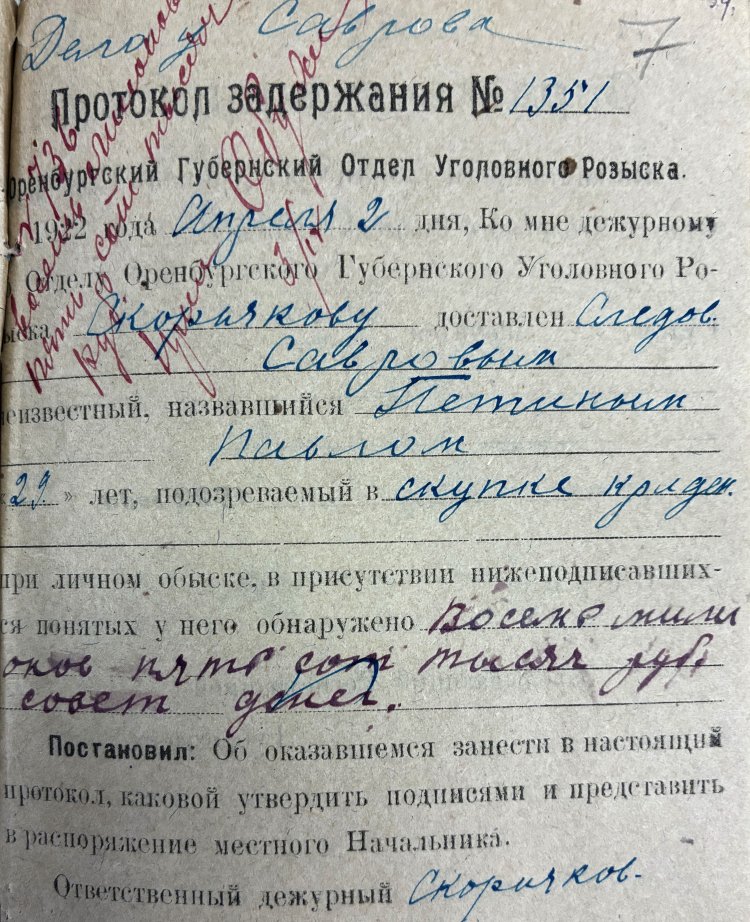 Дело у Саврова
7
Протокол задержания № 1351
Оренбургский Губернский Отдел Уголовного Розыска.
1922 года Апреля 2 дня, Ко мне дежурному
Отделу Оренбургского Губернского Уголовного Ро-
ыска Скорячкову доставлен Следов.
Савровым
неизвестный, назвавшийся Петиным
Павлом
«29» лет, подозреваемый в скупке краден.
при личном обыске, в присутствии нижеподписавших-
ся понятых у него обнаружено восемь мили
онов пять сот тысяч руб.
совет денег.
Постановил: Об оказавшемся занести в настоящий
протокол, каковой утвердить подписями и представить
в распоряжение местного Начальника.
Ответственный дежурный Скорячков.
восемь миллионов
пять сот тысяч
руб